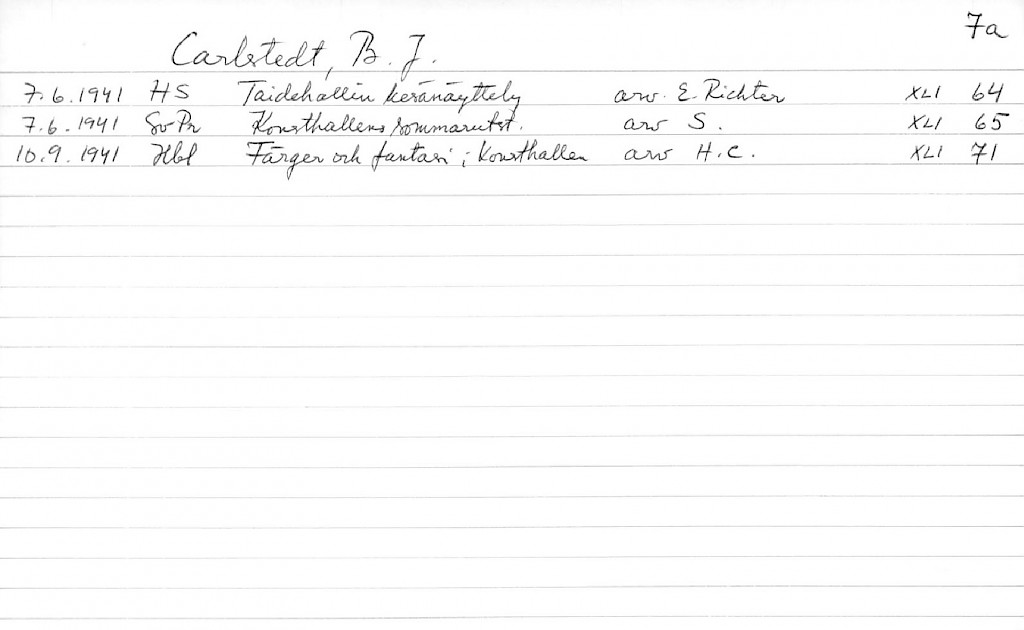 7a
Carlstedt, B. J.
7.6.1941 HS Taidehallin kesänäyttely arv. E. Richter XLI 64
7.6.1941 Sv Pr Konsthallens sommarutst. arv S. XLI 65
10.9.1941 Hbl Färger och fantasi i Konsthallen arv H.C. XLI 71